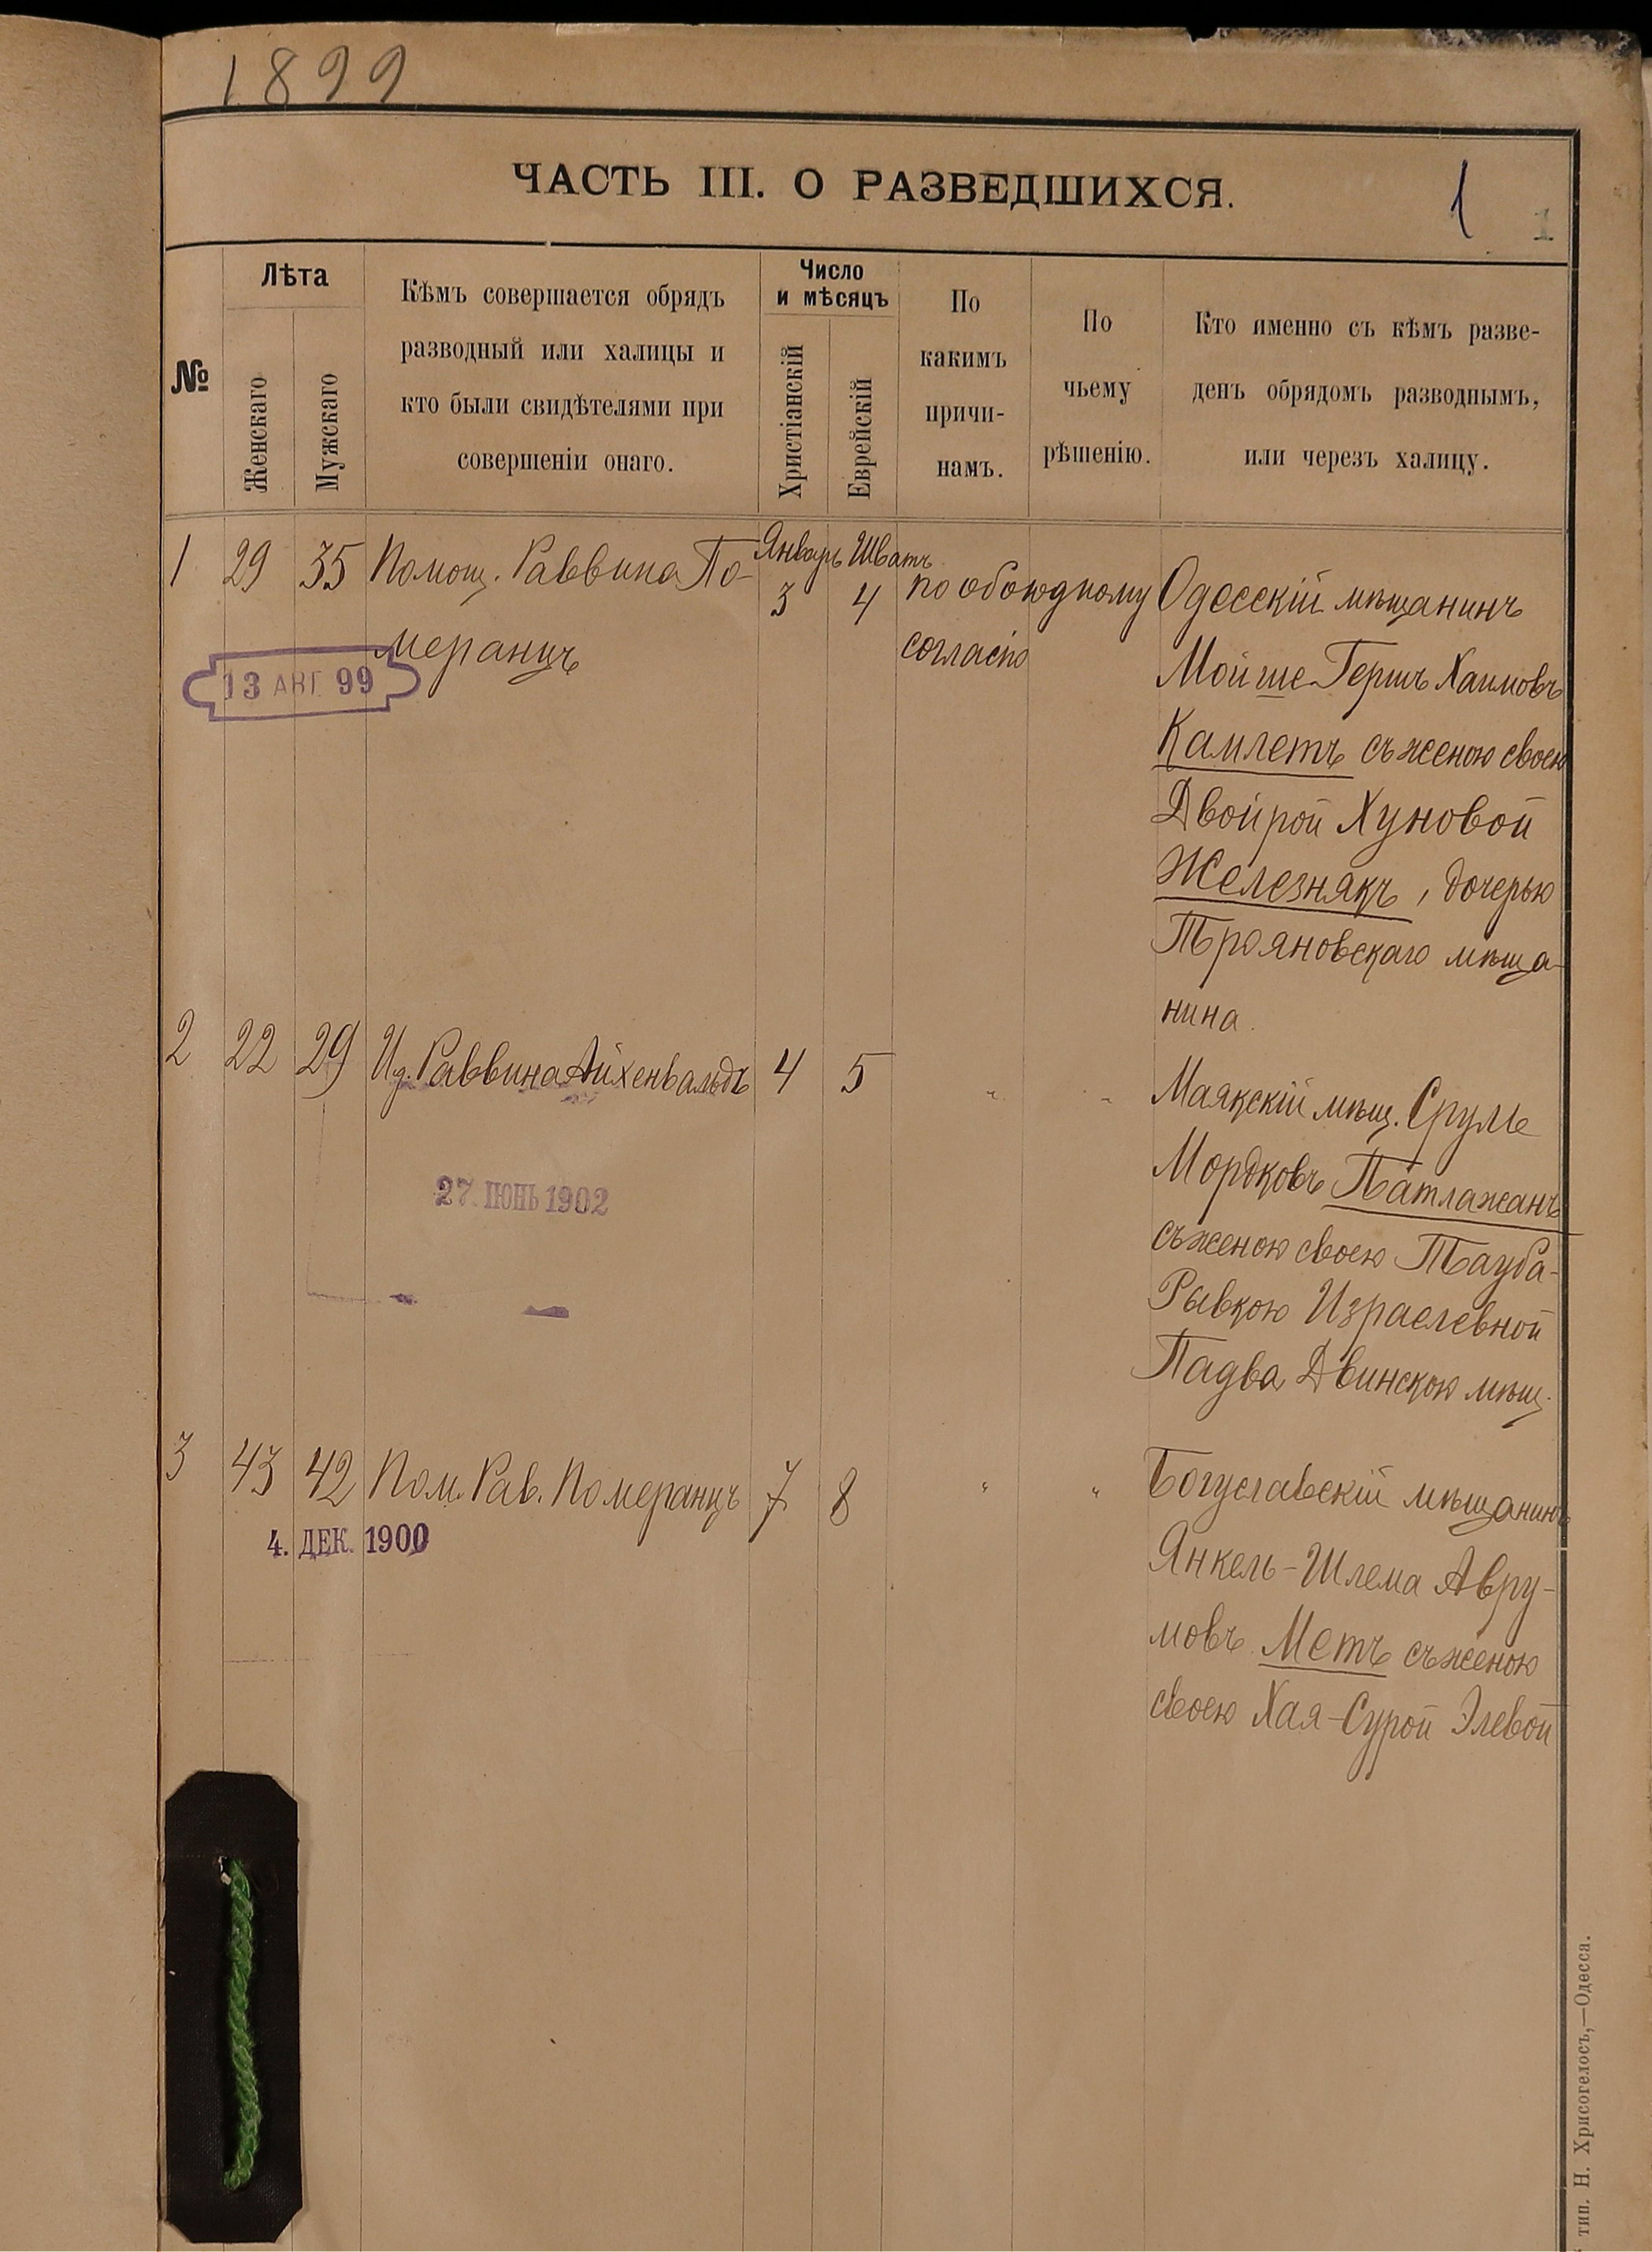 1899
ЧАСТЬ III. О РАЗВЕДШИХСЯ.
1
1
№
Лѣта
Женскаго
Мужскаго
Кѣмъ совершается обрядъ
разводный или халицы и
кто были свидѣтелями при
совершеніи онаго.
Число
и мѣсяцъ
Христіанскій
Еврейскій
По
какимъ
причи-
намъ.
По
чьему
рѣшенію.
Кто именно съ кѣмъ разве-
денъ обрядомъ разводнымъ,
или черезъ халицу.
Январь Шватъ
1 29 35 Помощ. Раввина По- 3 4 по обоюдному Одесскій мѣщанинъ
меранцъ согласію Мойше-Гершъ Хаимовъ
13 АВГ. 99
Камлетъ съ женою своею
Двойрой Хуновой
Железнякъ, дочерью
Трояновскаго мѣща-
нина.
2 22 29 И.д. Раввина Айхенвальдъ 4 5 " " Маякскій мѣщ. Сруль
Мордковъ Патлажанъ
27. ІЮНЬ 1902
съ женою своею Тауба-
Рывкою Израелевной
Падва Двинскою мѣщ.
3 43 42 Пом. Рав. Померанцъ 7 8 " " Богуславскій мѣщанинъ
4. ДЕК. 1900
Янкель-Шлема Авру-
мовъ Метъ съ женою
своею Хая-Сурой Элевой
тип. Н. Хрисогелосъ,—Одесса.